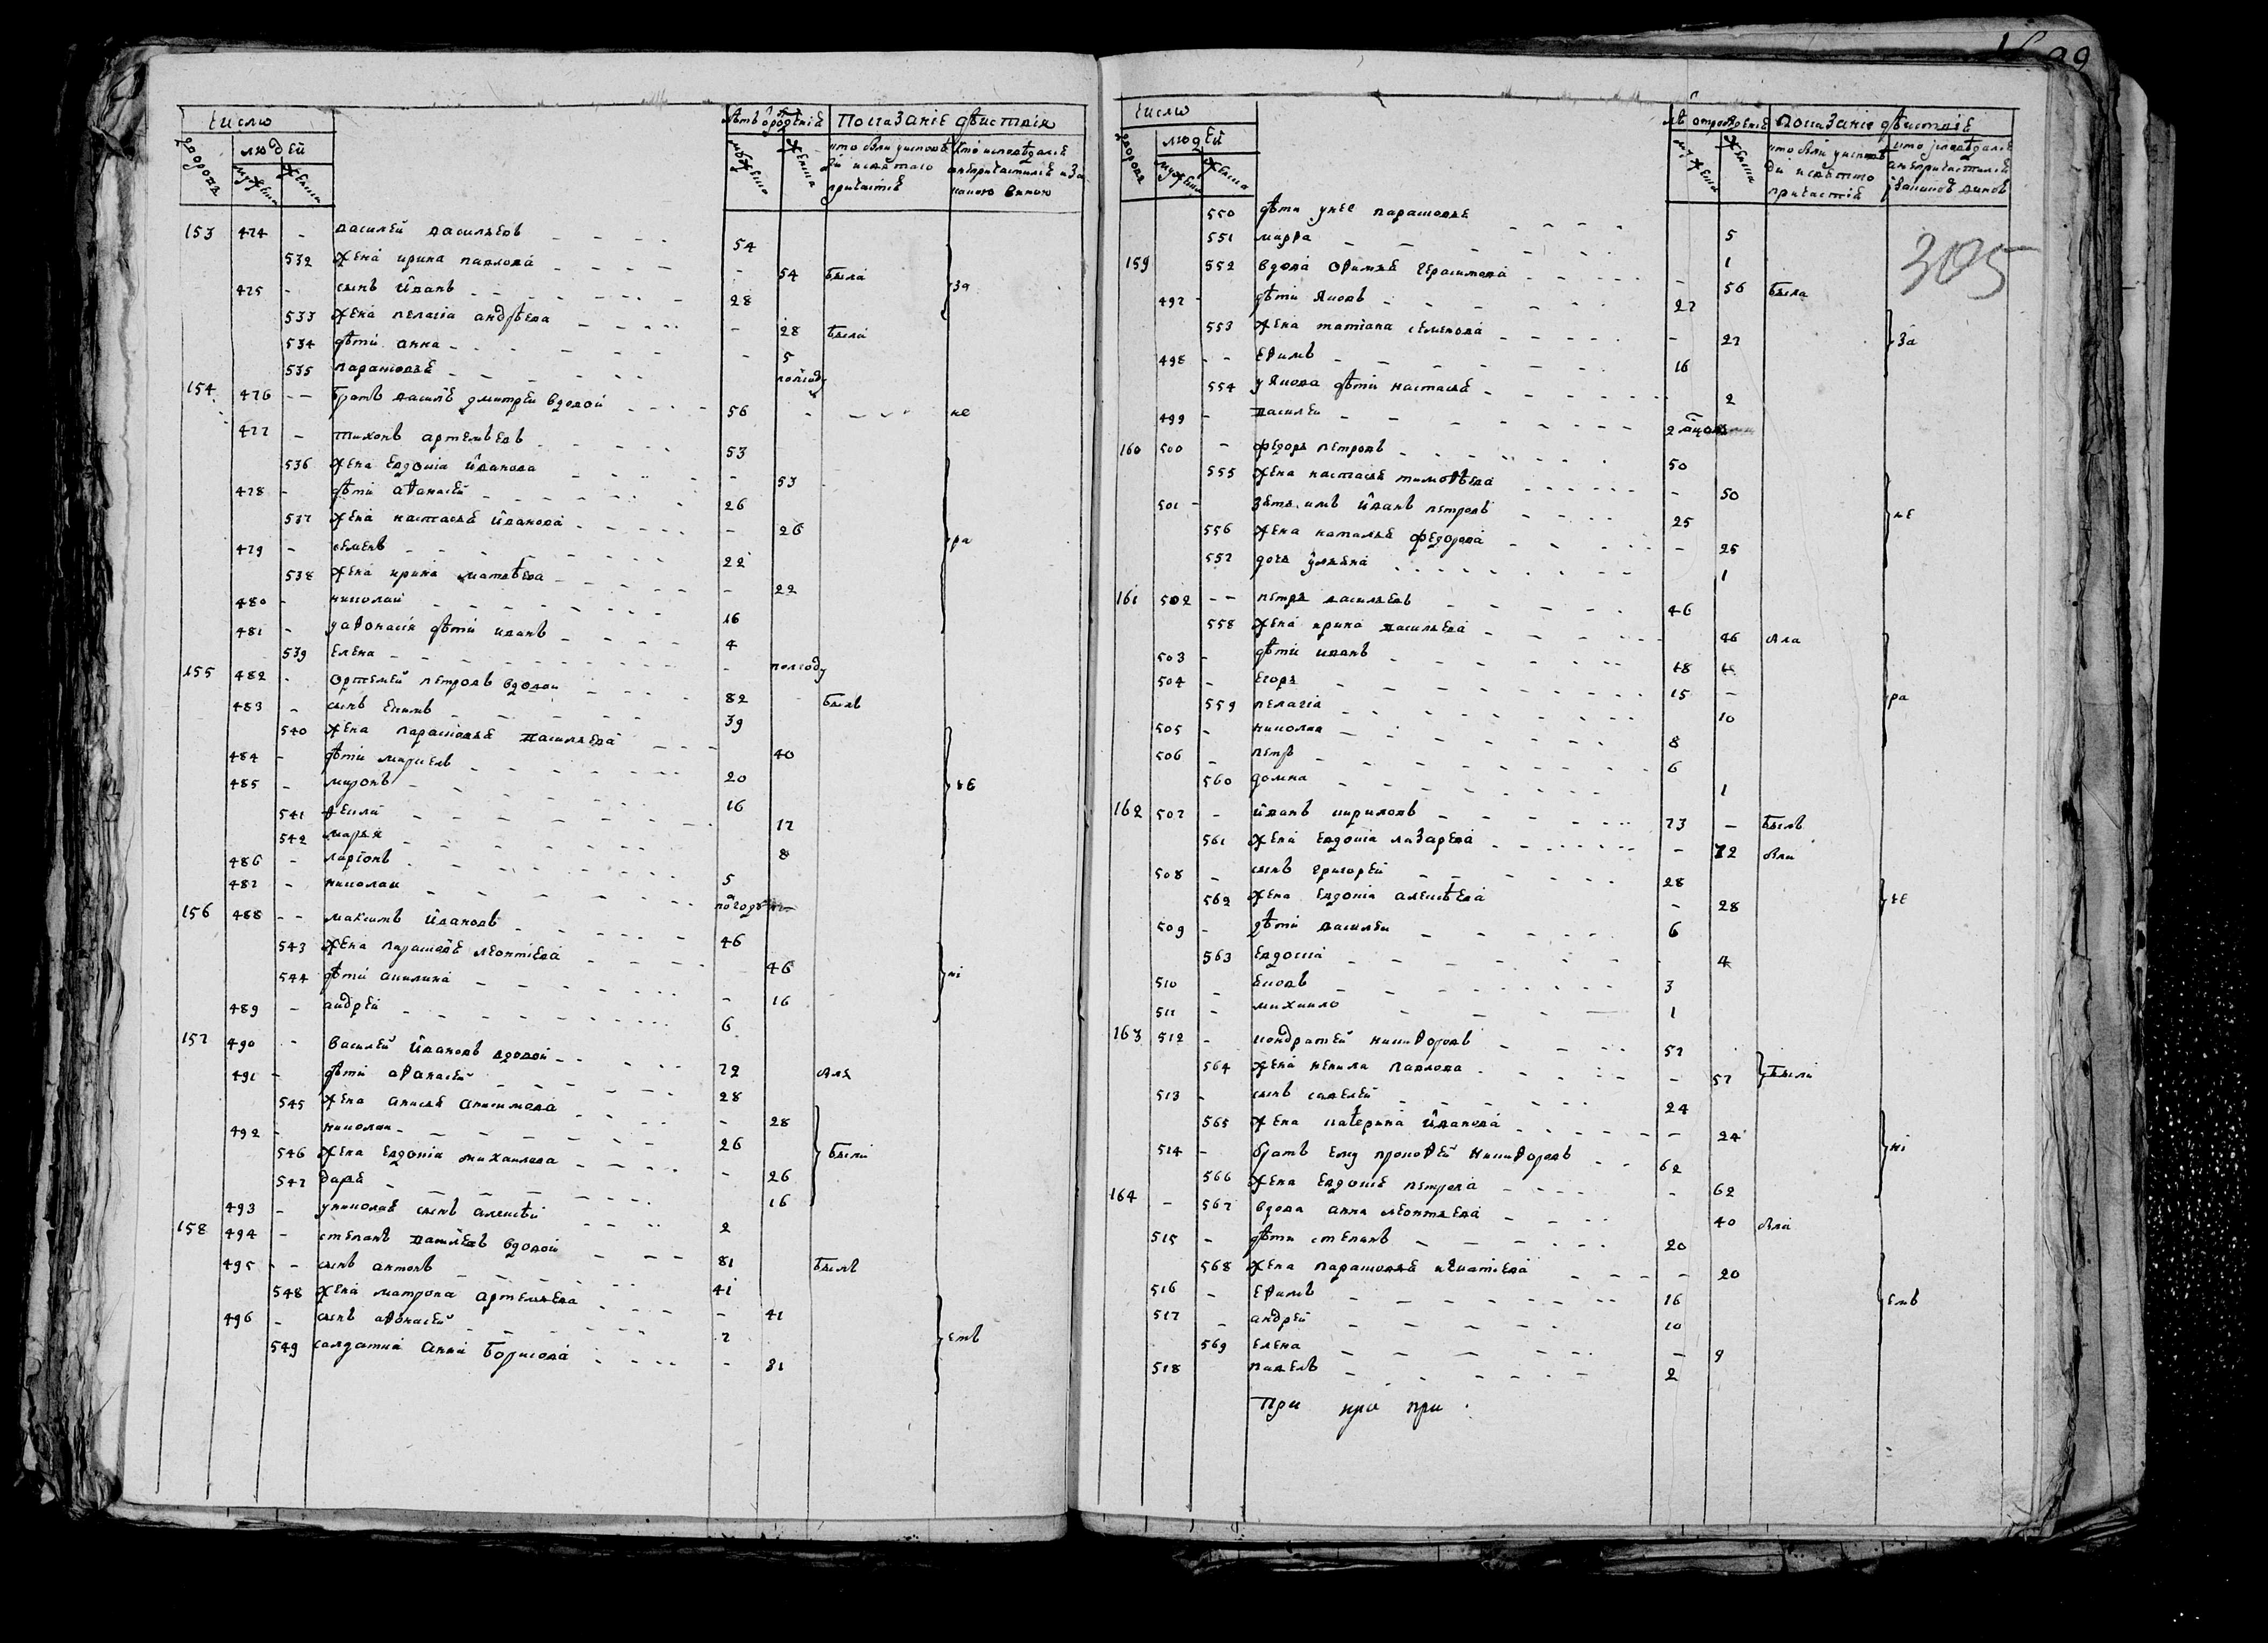 число
людей
дворовъ мужеска женска
лѣтъ ѿрожденїя
мужеска женска
Показание дѣиствия
кто были у исповѣди и святаго причастия
кто исповѣдался а не причастился и за какою виною
153 474 - василей васильевъ - - - - 54
532 жена ирина павлова - - - - - 54 была
475 - сынъ Иванъ - - - - - 28 за
533 жена пелагія андрѣева - - - - - 28 была
534 дѣти анна - - - - - 5
535 парасковья - - - - полгоду
154 476 - - братъ василья дмитрей вдовой - - - 56 - - - не
477 - тихонъ артемьевъ - - - - 53
536 жена евдокія Иванова - - - - 53
478 - дѣти аѳанасей - - - - 26
537 жена настасья Иванова - - - - - 26
479 - семенъ - - - - 22 ра
538 жена ирина матвѣева - - - - - 22
480 - николай - - - - 16
481 - у аѳонасия дѣти иванъ - - - - 4
539 елена - - - - - полгоду
155 482 - ортемей петровъ вдовой - - - 82 былъ
483 - сынъ екимъ - - - - 39
540 жена парасковья васильева - - - 40
484 - дѣти маркелъ - - - - 20
485 - миронъ - - - - 16 не
541 ѳекла - - - - 17
542 марья - - - - 8
486 - ларїонъ - - - - 5
487 - николаи - - - - погоду
156 488 - - максимъ Ивановъ - - - - 46
543 жена парасковья леонтіева - - - - 46
544 дѣти акилина - - - - - 16 ні
489 - андрей - - - - 6
157 490 - Василей Ивановъ вдовой - - - 72 былъ
491 - дѣти аѳанасей - - - - 28
545 жена анисья анисимова - - - - 28
492 - николаи - - - - 26
546 жена евдокія михаилова - - - - - 26 были
547 дарья - - - - 16
493 - у николая сынъ алексѣй - - - - 2
158 494 - степанъ васильевъ вдовой - - - 81 былъ
495 - - сынъ антонъ - - - - 41
548 жена матрона артемьева - - - - 41
496 - сынъ аѳонасей - - - - 7 емъ
549 солдатка анна борисова - - - - - 81
305
число
людей
дворовъ мужеска женска
лѣ отрожденїя
мужеска женска
Показание дѣиствїе
550 дѣти у нее парасковья - - - - 5
551 марѳа - - - - 1
159 552 вдова оѳимья герасимова - - - - - 56 была
497 - дѣти яковъ - - - - 27
553 жена татіана семенова - - - - - 27 за
498 - - еѳимъ - - - - 16
554 у якова дѣти настасья - - - - 2
499 - василеи - - - - 2
160 500 - федоръ петровъ - - - - 50
555 жена настасья тимоѳѣева - - - - - 50
501 - зять имъ Иванъ петровъ - - - - 25 не
556 жена наталья федорова - - - - - 25
557 дочь ульяна - - - - 1
161 502 - - петръ васильевъ - - - - 46
558 жена ирина васильева - - - - 46 была
503 - дѣти иванъ - - - - 18
504 - егоръ - - - - 15 - ра
559 пелагіа - - - - 10
505 - николаи - - - - 8
506 - петръ - - - - 6
560 домна - - - - 1
162 507 - Иванъ кириловъ - - - - 73 - былъ
561 жена евдокіа лазарева - - - - - 72 была
508 - сынъ григорей - - - - 28
562 жена евдокіа алексѣева - 28 не
509 - дѣти василеи - - - - 6
563 евдокіа - - - - 4
510 - яковъ - - - - 3
511 - михаило - - - - 1
163 512 - кондратей никиѳоровъ - - - - 57
564 жена ненила павлова - - - - - 57 были
513 - сынъ савелей - - - - 24
565 жена катерина Иванова - - - - - 24
514 - братъ ему прокоѳей никиѳоровъ - - 62 ні
566 жена евдокія петрова - - - - - 62
164 - 567 вдова анна леонтьева - - - - 40 была
515 - дѣти степанъ - - - - 20
568 жена парасковья игнатіева - - - - - 20
516 - еѳимъ - - - - 16 емъ
517 - андрей - - - - 10
569 елена - - - - - 9
518 павелъ - - - - 2
При при при